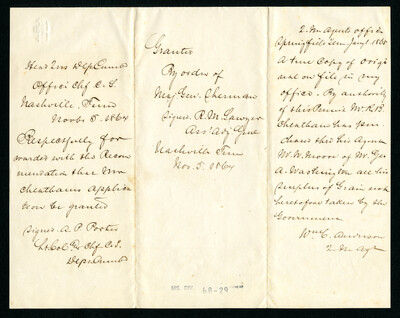 Head Qrs Dep Cumb
Office Chf C. S.
Nashville Tenn
Novb 5. 1864
Respectfully for
warded with the Recom
mendation that Mr
Cheathams applica
tion be granted
signed. A. P. Porter
Lt Col & Chf C. S.
Dep. Cumb
Granted
By order of
Maj Gen. Sherman
Signed. R. M. Sawyer
Ass. Adj Genl
Nashville Tenn
Nov. 5. 1864
2. M Agents office
Springfield Tenn Jany 1865
A true Copy of origi
nal on file in my
office. By authority
of this Permit W. R. B.
Cheatham has pur
chased thro his Agent
W. W. of W. Geo
A. Washington all his
Surplus of Grain not
heretofore taken by the
Government
Wm C. Anderson
2. M Agt
68-29